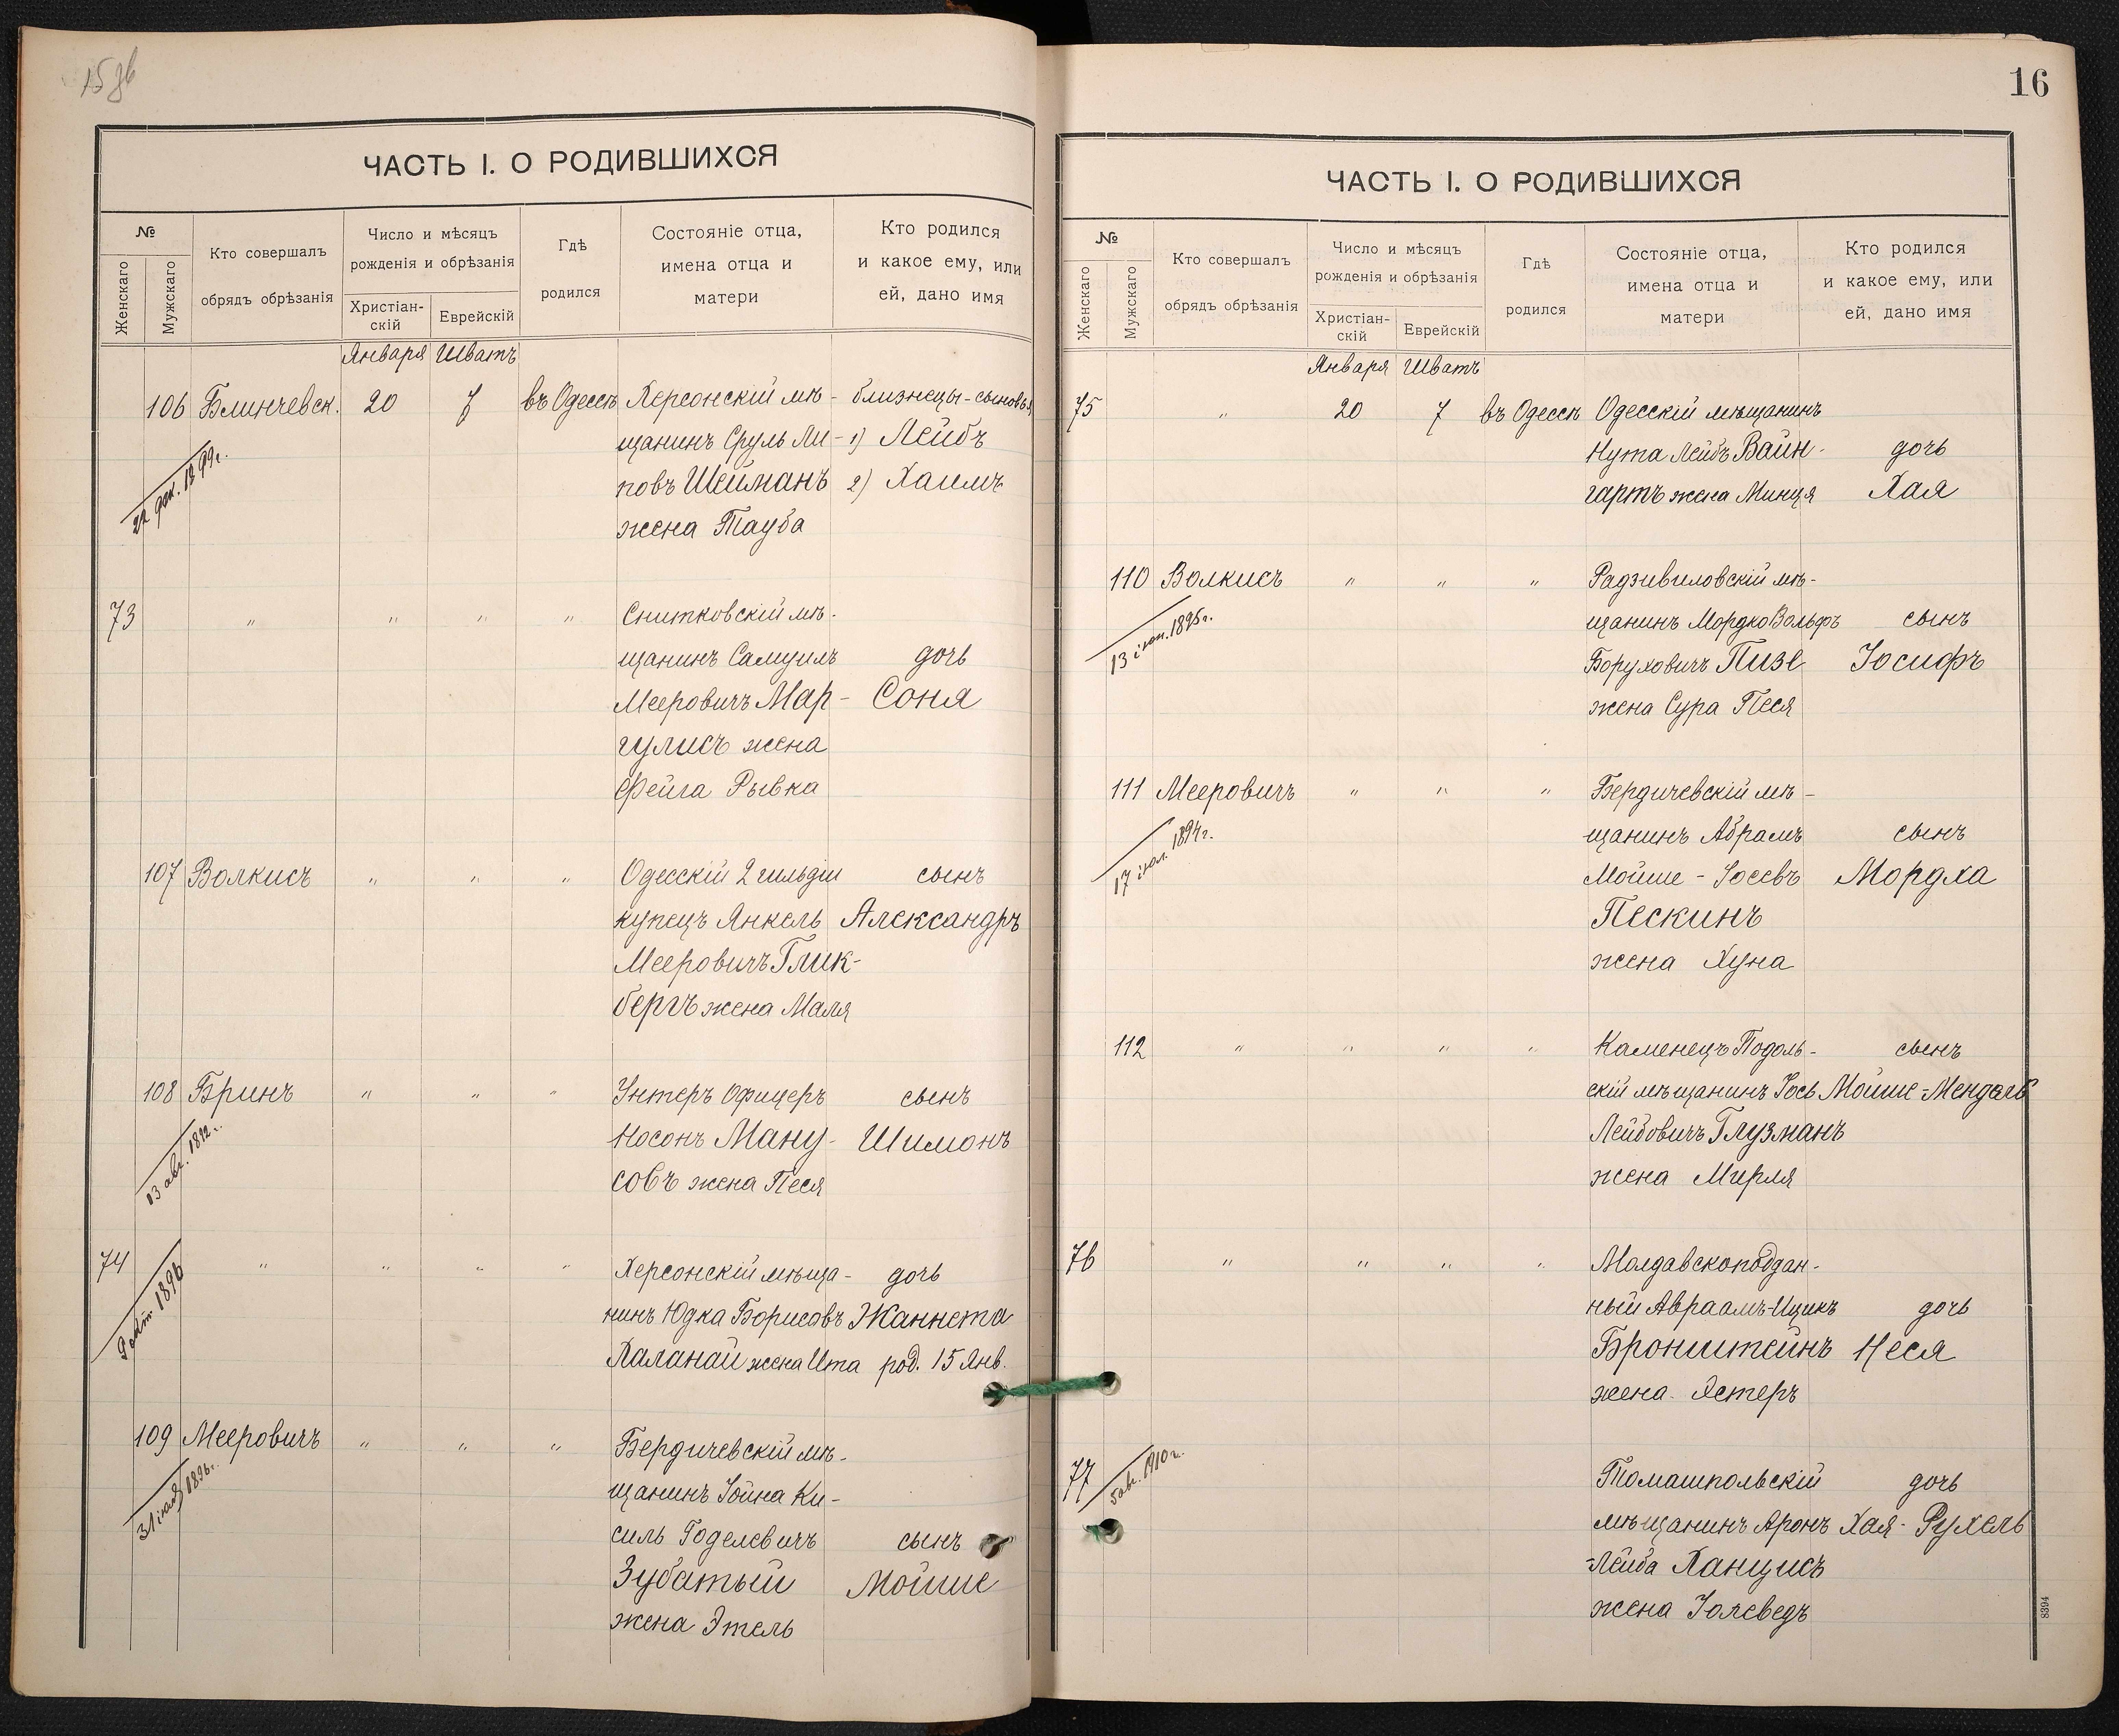 15 зв
ЧАСТЬ I. О РОДИВШИХСЯ
№
Женскаго
Мужскаго
Кто совершалъ
обрядъ обрѣзанія
Число и мѣсяцъ
рожденія и обрѣзанія
Христіан-
скій
Еврейскій
Гдѣ
родился
Состояніе отца,
имена отца и
матери
Кто родился
и какое ему, или
ей, дано имя
Января Шватъ
106 Блинчевск. 20 7 въ Одессѣ Херсонскій мѣ- близнецы-сыновья
щанинъ Сруль Ли- 1) Лейбъ
повъ Шейманъ 2) Хаимъ
жена Тауба
22 дек. 1899г.
73 " " " " Снитковскій мѣ-
щанинъ Самуилъ дочь
Мееровичъ Мар- Соня
гулисъ жена
Фейга Рывка
107 Волкисъ " " " Одесскій 2 гильдіи сынъ
купецъ Янкель Александръ
Мееровичъ Глик-
бергъ жена Маля
108 Бринъ " " " Унтеръ Офицеръ сынъ
Носонъ Ману- Шимонъ
совъ жена Песя
13 авг. 1892г.
74 " " " " Херсонскій мѣща- дочь
нинъ Юдка Борисовъ Жаннета
Каланай жена Ита род. 15 Янв.
9 окт. 1896
109 Мееровичъ " " " Бердичевскій мѣ-
щанинъ Іойна Ки-
силь Годелевичъ сынъ
Зубатый Мойше
жена Этель
31 1896г.
16
ЧАСТЬ I. О РОДИВШИХСЯ
№
Женскаго
Мужскаго
Кто совершалъ
обрядъ обрѣзанія
Число и мѣсяцъ
рожденія и обрѣзанія
Христіан-
скій
Еврейскій
Гдѣ
родился
Состояніе отца,
имена отца и
матери
Кто родился
и какое ему, или
ей, дано имя
Января Шватъ
75 " 20 7 въ Одессѣ Одесскій мѣщанинъ
Нута Лейбъ Вайн- дочь
гартъ жена Минця Хая
110 Волкисъ " " " Радзивиловскій мѣ-
щанинъ Мордко Вольфъ сынъ
Боруховичъ Пизе Іосифъ
жена Сура Песя
13 іюн. 1895г.
111 Мееровичъ " " " Бердичевскій мѣ-
щанинъ Абрамъ сынъ
Мойше-Іосевъ Мордха
Пескинъ
жена Хуна
17 іюл. 1894г.
112 " " " " Каменецъ Подоль- сынъ
скій мѣщанинъ Іось Мойше-Мендель
Лейбовичъ Глузманъ
жена Мирля
76 " " " " Молдавскоподдан-
ный Авраамъ-Ицикъ дочь
Бронштейнъ Неся
жена Эстеръ
77 Томашпольскій дочь
мѣщанинъ Аронъ Хая-Рухель
-Лейба Ханцисъ
жена Іохеведъ
5 авг. 1910г.
8394